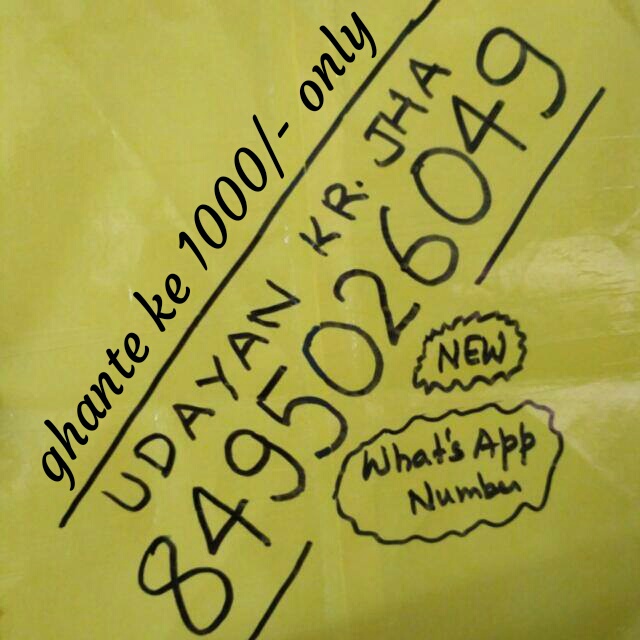 ghante ke 1000/- only
UDAYAN KR. JHA
8495026049
NEW
What's App
Number